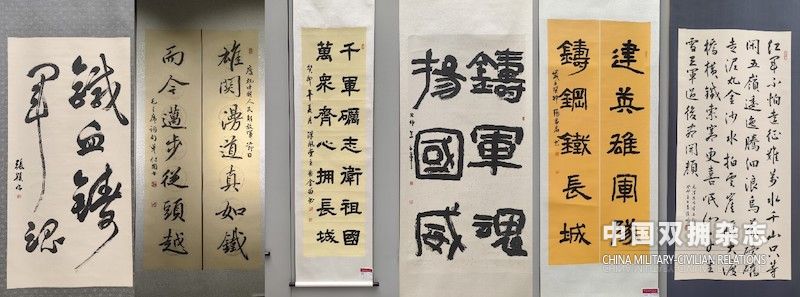 鐵血鑄
軍魂
雄関漫道真如鐵
而今邁步從頭越
千軍礪志衛祖國
萬衆齊心擁長城
鑄軍魂
揚國威
建英雄軍隊
鑄鋼鐵長城
红軍不怕遠征難萬水千山只等
闲五嶺逶迤騰细浪烏蒙磅礴
走泥丸金沙水拍雲崖暖大渡
橋横鐵索寒更喜岷山千里
雪三軍過後盡開顏
中国双拥杂志
CHINA MILITARY-CIVILIAN RELATIONS